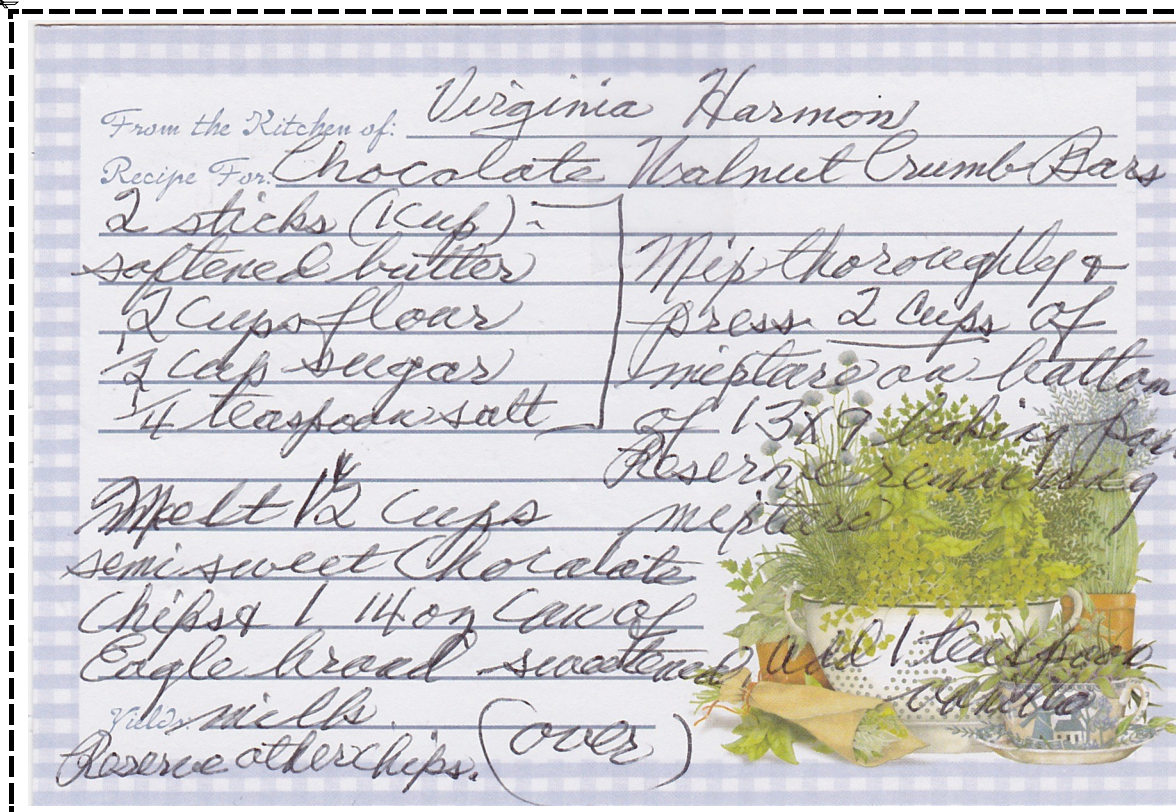 From the Kitchen of: Virginia Harmon
Recipe For: Chocolate Walnut Crumb Bars
2 sticks (1 cup) -
softened butter
2 cups flour
1/2 cup sugar
1/4 teaspoon salt
Mix thoroughly &
press 2 cups of
mixture on bottom
of 13x9 baking pan
Reserve remaining
mixture
Melt 1 1/2 cups
semi sweet Chocolate
chips & 1 14 oz can of
Eagle brand sweetened
Yields: milk.
add 1 teaspoon
vanilla
Reserve other chips.
(over)